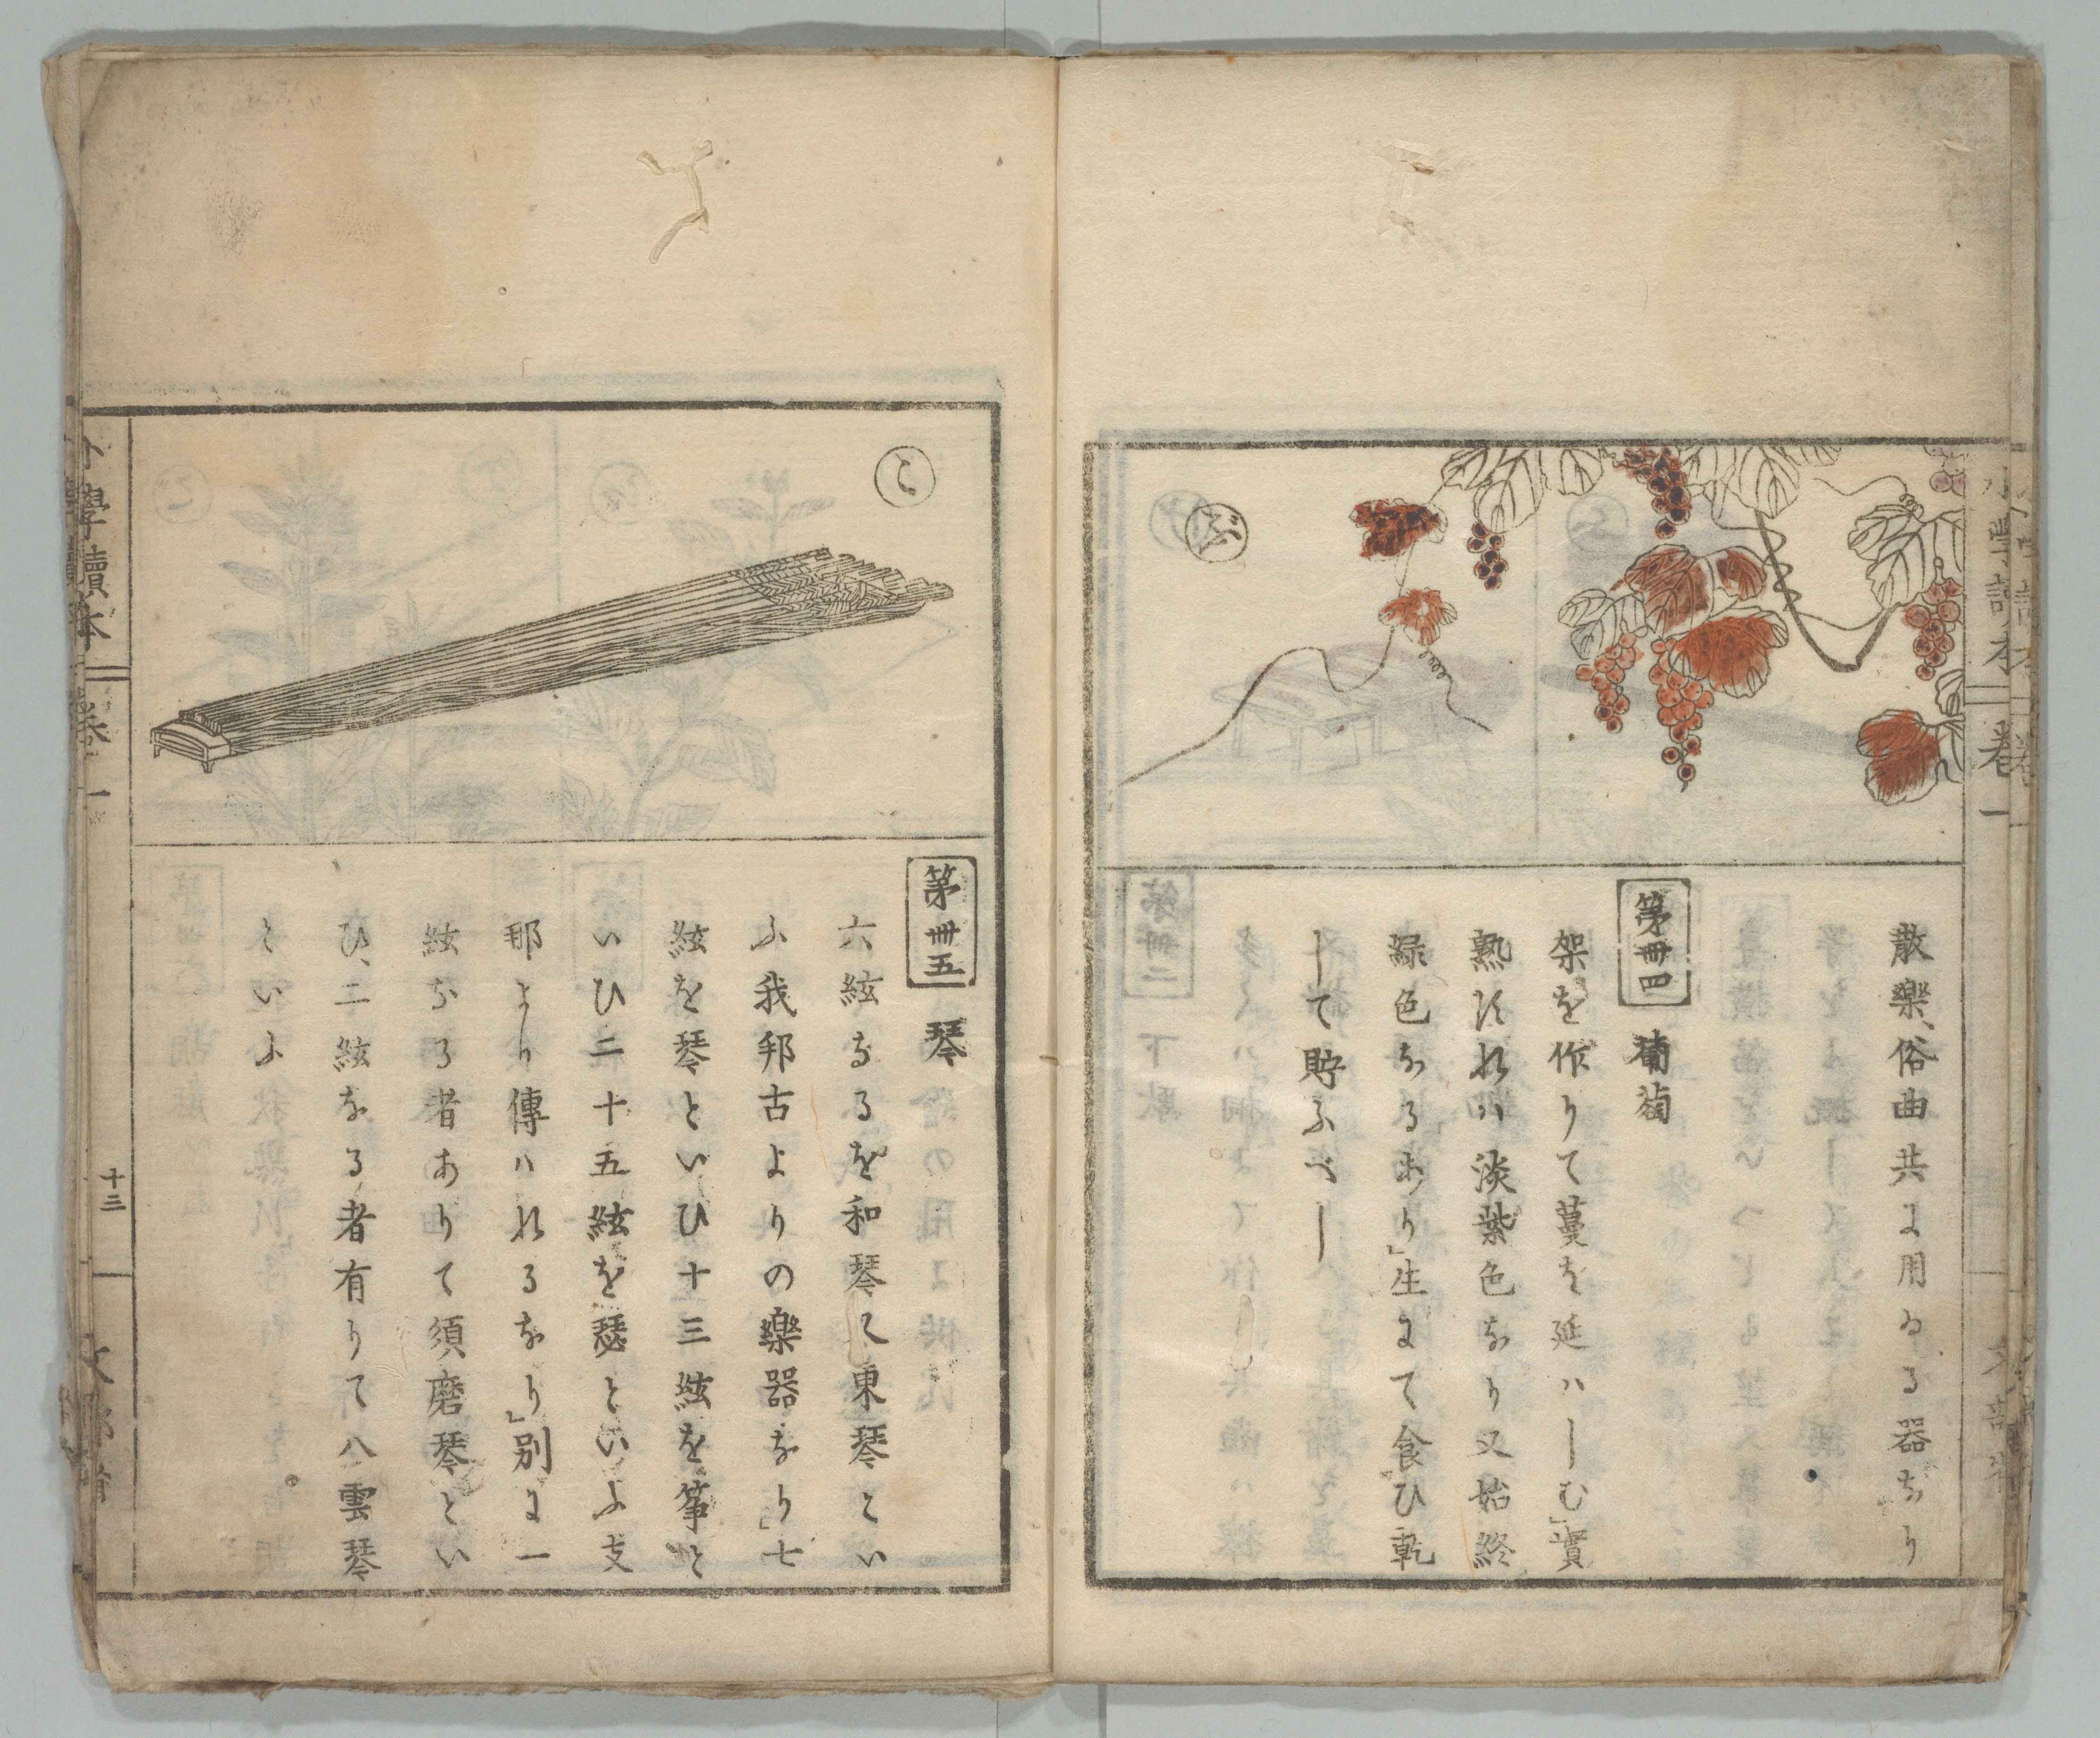 小學讀本 卷一
ぶ
散樂、俗曲共に用ゐる器なり
第卅四 葡萄
架を作りて蔓を延ハしむ」實
熟すれハ淡紫色なり又始終
緑色なるあり」生にて食ひ乾
して貯ふべし
こ
第卅五 琴
六絃なるを和琴又東琴とい
ふ我邦古よりの樂器なり」七
絃を琴といひ十三絃を箏と
いひ二十五絃を瑟といふ支
那より傳ハれるなり」別に一
絃なる者ありて須磨琴とい
ひ、二絃なる者有りて八雲琴
といふ
小學讀本 卷一
十三
文部省